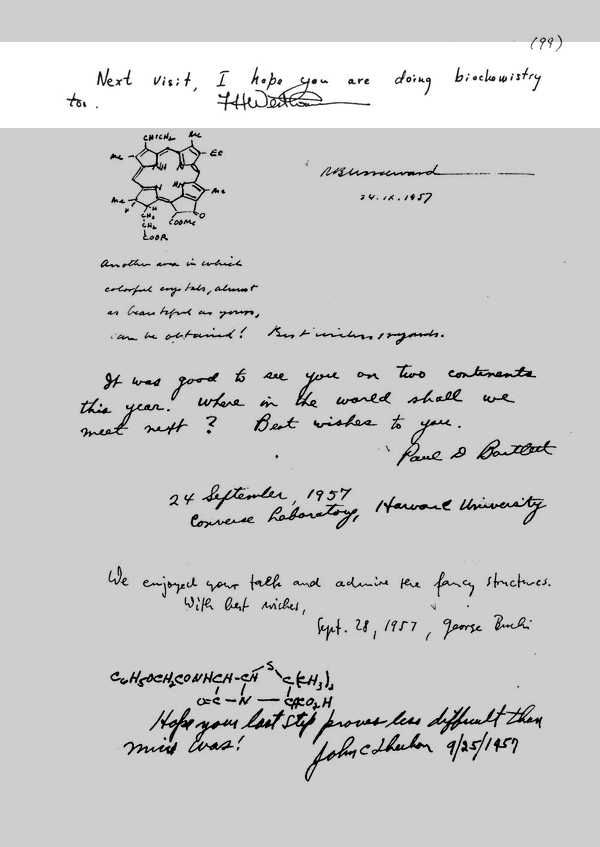 (99)
Next visit, I hope you are doing biochemistry
too. FHWestheimer
CHICH₂ Me
Me Et
NH N
N HN
Me Me
H H
CH₂ COOMe O
CH₂
COOR
RBWoodward
24.ix.1957
Another area in which
colorful crystals, almost
as beautiful as yours,
can be obtained! Best wishes & regards.
It was good to see you on two continents
this year. Where in the world shall we
meet next? Best wishes to you.
Paul D Bartlett
24 September, 1957
Converse Laboratory, Harvard University
We enjoyed your talk and admire the fancy structures.
With best wishes,
Sept. 28, 1957, George Büchi
C₆H₅OCH₂CONHCH-CH S C(CH₃)₂
O=C - N — CHCO₂H
Hope your last step proves less difficult than
mine was! John C Sheehan 9/25/1957